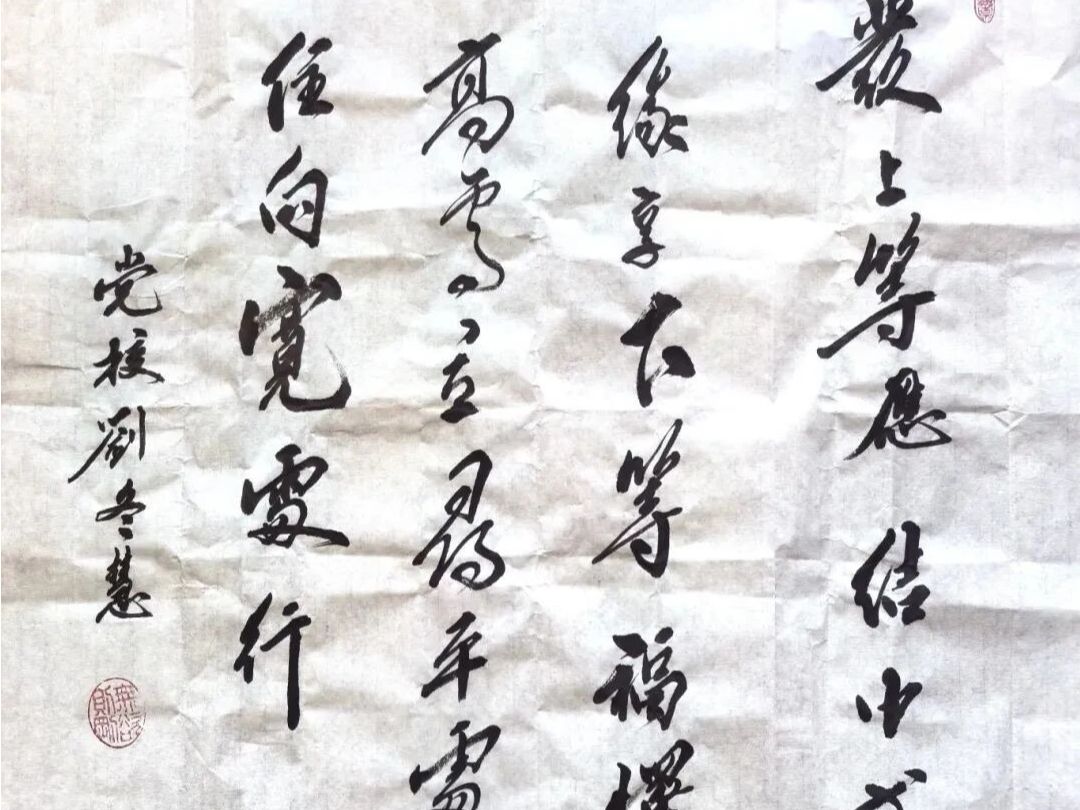 發上等愿結中
緣享下等福擇
高處立尋平處
住向寬處行
党校劉冬慧
無欲則剛